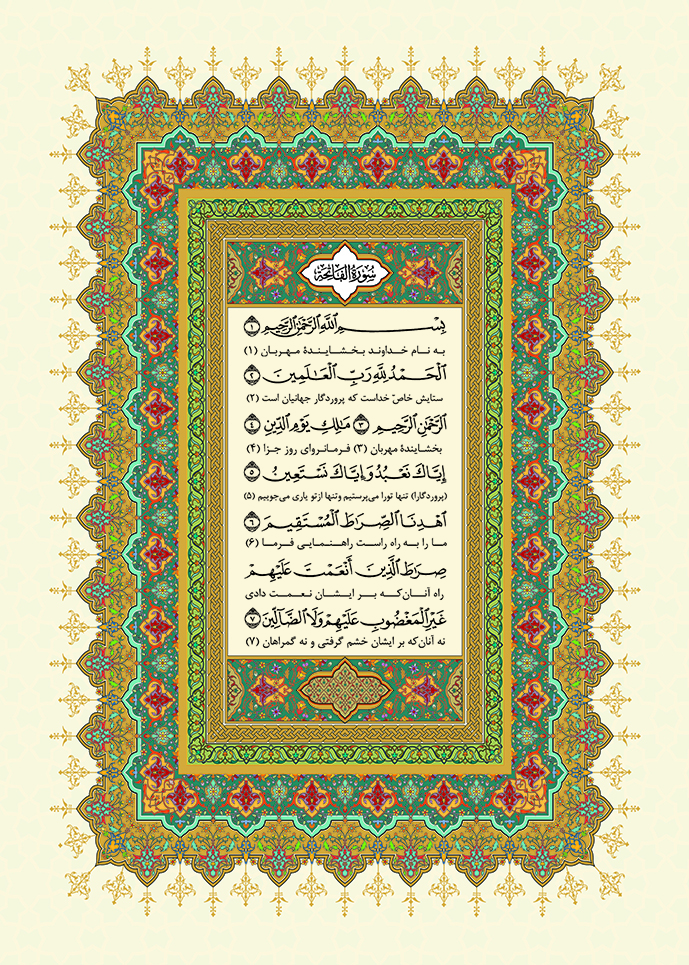 سُورَةُ الفَاتِحَة
بِسْمِ اللَّهِ الرَّحْمَٰنِ الرَّحِيمِ ﴿١﴾
به نام خداوند بخشایندهٔ مهربان (۱)
الْحَمْدُ لِلَّهِ رَبِّ الْعَالَمِينَ ﴿٢﴾
ستایش خاصّ خداست که پروردگار جهانیان است (۲)
الرَّحْمَٰنِ الرَّحِيمِ ﴿٣﴾ مَالِكِ يَوْمِ الدِّينِ ﴿٤﴾
بخشایندهٔ مهربان (۳) فرمانروای روز جزا (۴)
إِيَّاكَ نَعْبُدُ وَإِيَّاكَ نَسْتَعِينُ ﴿٥﴾
(پروردگارا) تنها تورا می‌پرستیم وتنها ازتو یاری می‌جوییم (۵)
اهْدِنَا الصِّرَاطَ الْمُسْتَقِيمَ ﴿٦﴾
ما را به راه راست راهنمایی فرما (۶)
صِرَاطَ الَّذِينَ أَنْعَمْتَ عَلَيْهِمْ
راه آنان‌که بر ایشان نعمت دادی
غَيْرِ الْمَغْضُوبِ عَلَيْهِمْ وَلَا الضَّالِّينَ ﴿٧﴾
نه آنان‌که بر ایشان خشم گرفتی و نه گمراهان (۷)